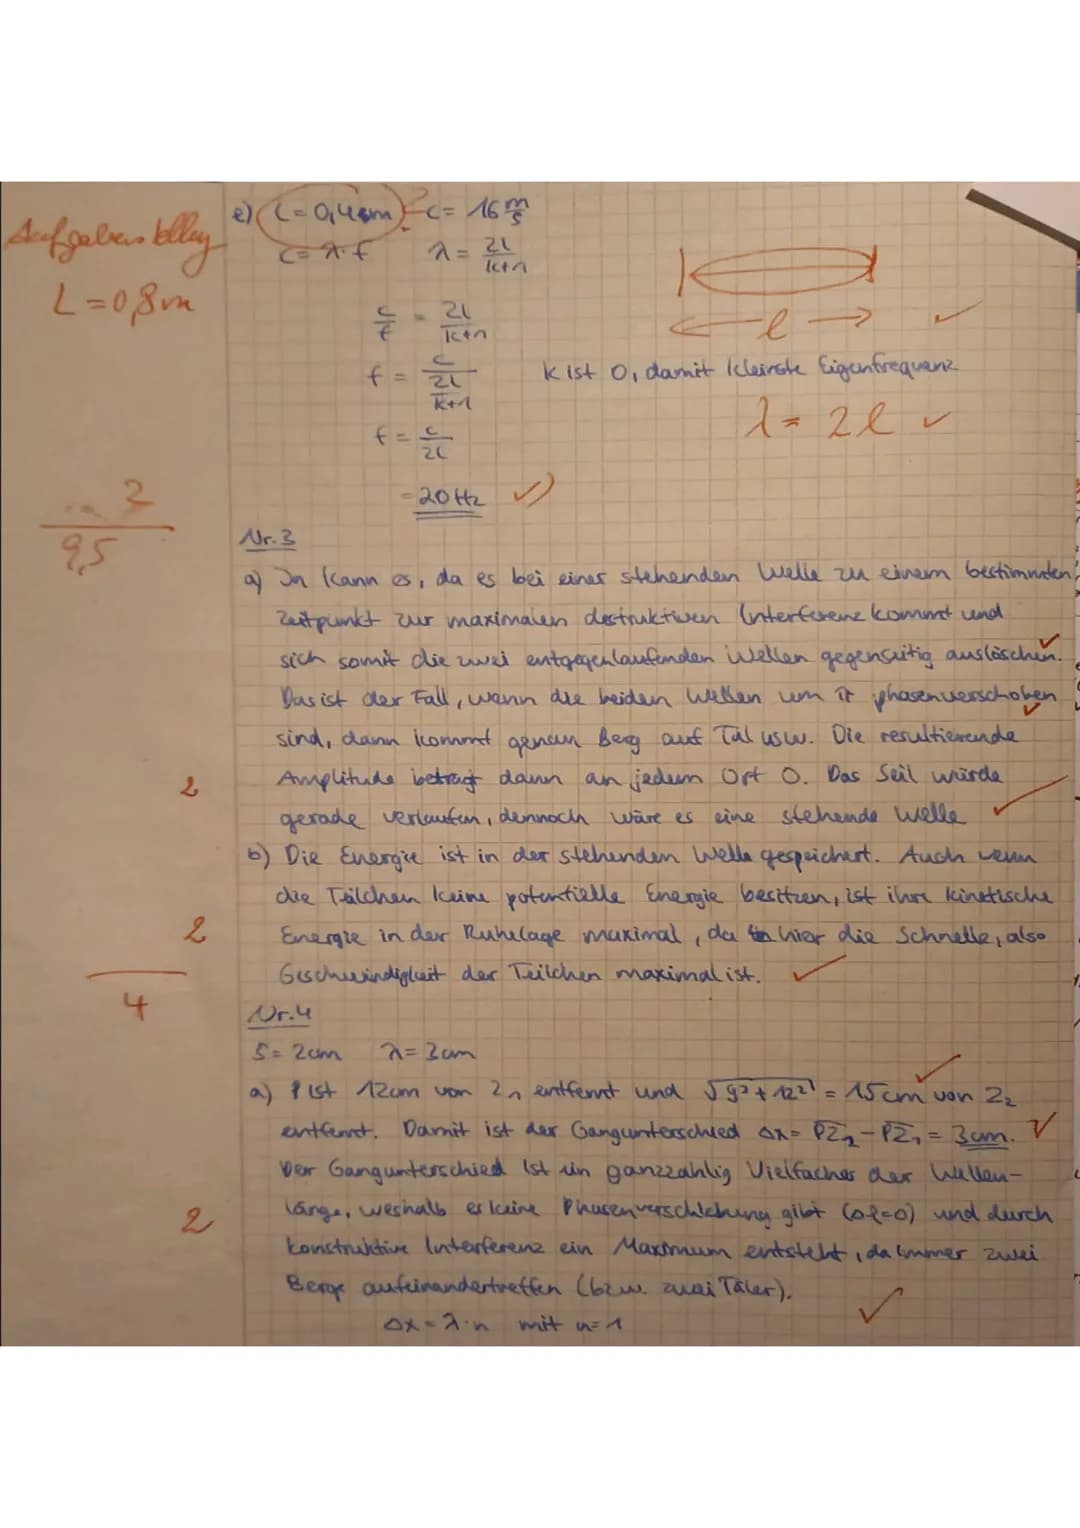 Aufgabenstellung
L = 0,8m
e) L = 0,4m ? c = 16 m/s
c = λ·f λ = 2L/k+1
c/f = 2L/k+1
l
f = c/(2L/k+1) k ist 0, damit kleinste Eigenfrequenz
λ = 2l
f = c/2L
= 20 Hz
2
9,5
Nr. 3
a) Ja kann es, da es bei einer stehenden Welle zu einem bestimmten
Zeitpunkt zur maximalen destruktiven Interferenz kommt und
sich somit die zwei entgegenlaufenden Wellen gegenseitig auslöschen.
Das ist der Fall, wenn die beiden Wellen um π phasenverschoben
sind, dann kommt genau Berg auf Tal usw. Die resultierende
2 Amplitude beträgt dann an jedem Ort 0. Das Seil würde
gerade verlaufen, dennoch wäre es eine stehende Welle
b) Die Energie ist in der stehenden Welle gespeichert. Auch wenn
die Teilchen keine potentielle Energie besitzen, ist ihre kinetische
2 Energie in der Ruhelage maximal, da hier die Schnelle, also
Geschwindigkeit der Teilchen maximal ist.
4
Nr. 4
S = 2cm λ = 3cm
a) P ist 12cm von Z1 entfernt und √9²+12² = 15cm von Z2
entfernt. Damit ist der Gangunterschied Δx = PZ2 - PZ1 = 3cm.
Der Gangunterschied ist ein ganzzahlig Vielfaches der Wellen-
2 länge, weshalb es keine Phasenverschiebung gibt (Δφ=0) und durch
konstruktive Interferenz ein Maximum entsteht, da immer zwei
Berge aufeinandertreffen (bzw. zwei Täler).
Δx = λ·n mit n = 1